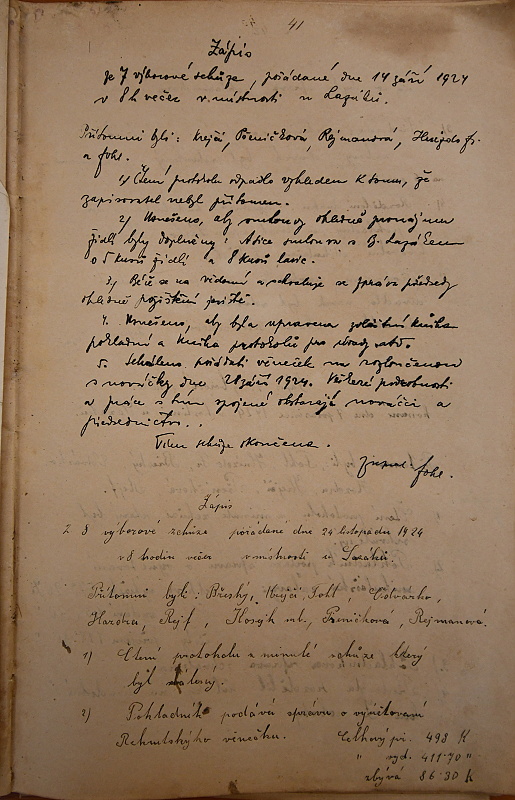 41
Zápis
ze 7 výborové schůze, pořádané dne 14 září 1924
v 8 h večer v místnosti u Lazáků.
Přítomni byli: Krejčí, Pšeničková, Rejmanová,
a Fohl.
1) Čtení protokolu odpadlo vzhledem k tomu, že
zapisovatel nebyl přítomen.
2) Usnešeno, aby smlouvy ohledně pronájmu
židlí byly doplněny: smlouva s B. Lazákem
o 5 kusů židlí a 8 kusů lavic.
3) Béře se na vědomí a schvaluje se zpráva předsedy
ohledně pojištění jeviště.
4. Usnešeno, aby byla upravena zvláštní knížka
pokladní a kniha protokolů pro
5. Schváleno pořádati věneček na rozloučenou
s nováčky dne 28 září 1924. Veškeré podrobnosti
a práce s tím spojené obstarají nováčci a
předsednictvo.
Tím schůze skončena.
Zapsal Fohl.
Zápis
z 8 výborové schůze pořádané dne 24 listopadu 1924
v 8 hodin večer v místnosti u Lazáků.
Přítomni byli: Břeský, Krejčí, Fohl,
Hardra, Rejf, ml., Pšeničková, Rejmanová.
1) Čtení protokolu z minulé schůze který
byl
2) Pokladník podává zprávu o vyúčtování
Rekrutskýho věnečku. Celkový př. 498 K
" vyd. 411·70 "
zbývá 86·30 K